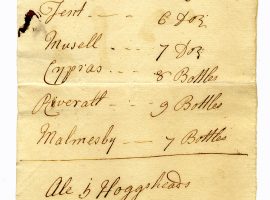 Tent - - - 6 Doz
Musell - - - 7 Doz
Cypras - - - 8 Bottles
Riveratt - - 9 Bottles
Malmesby - - - 7 Bottles
Ale 5 Hoggsheads